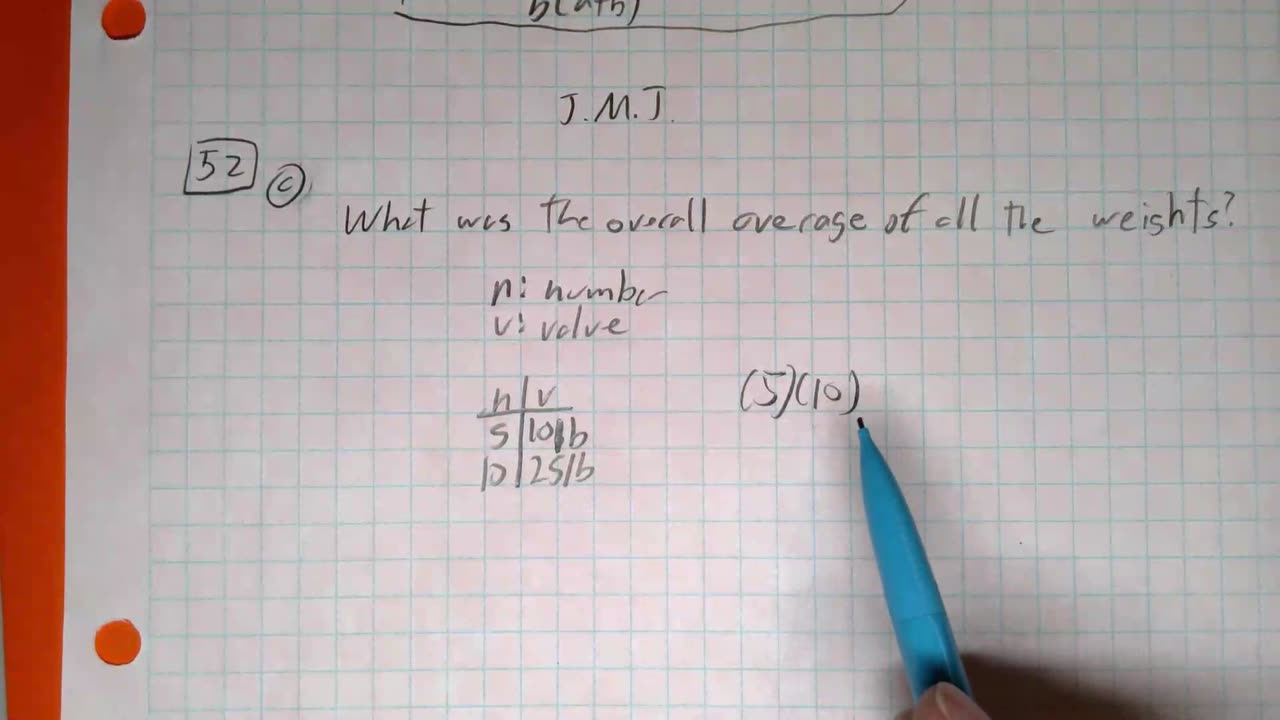 b(a+b)
J.M.J.
52 c
What was the overall average of all the weights?
n: number
v: value
n v
5 10lb
10 25lb
(5)(10)